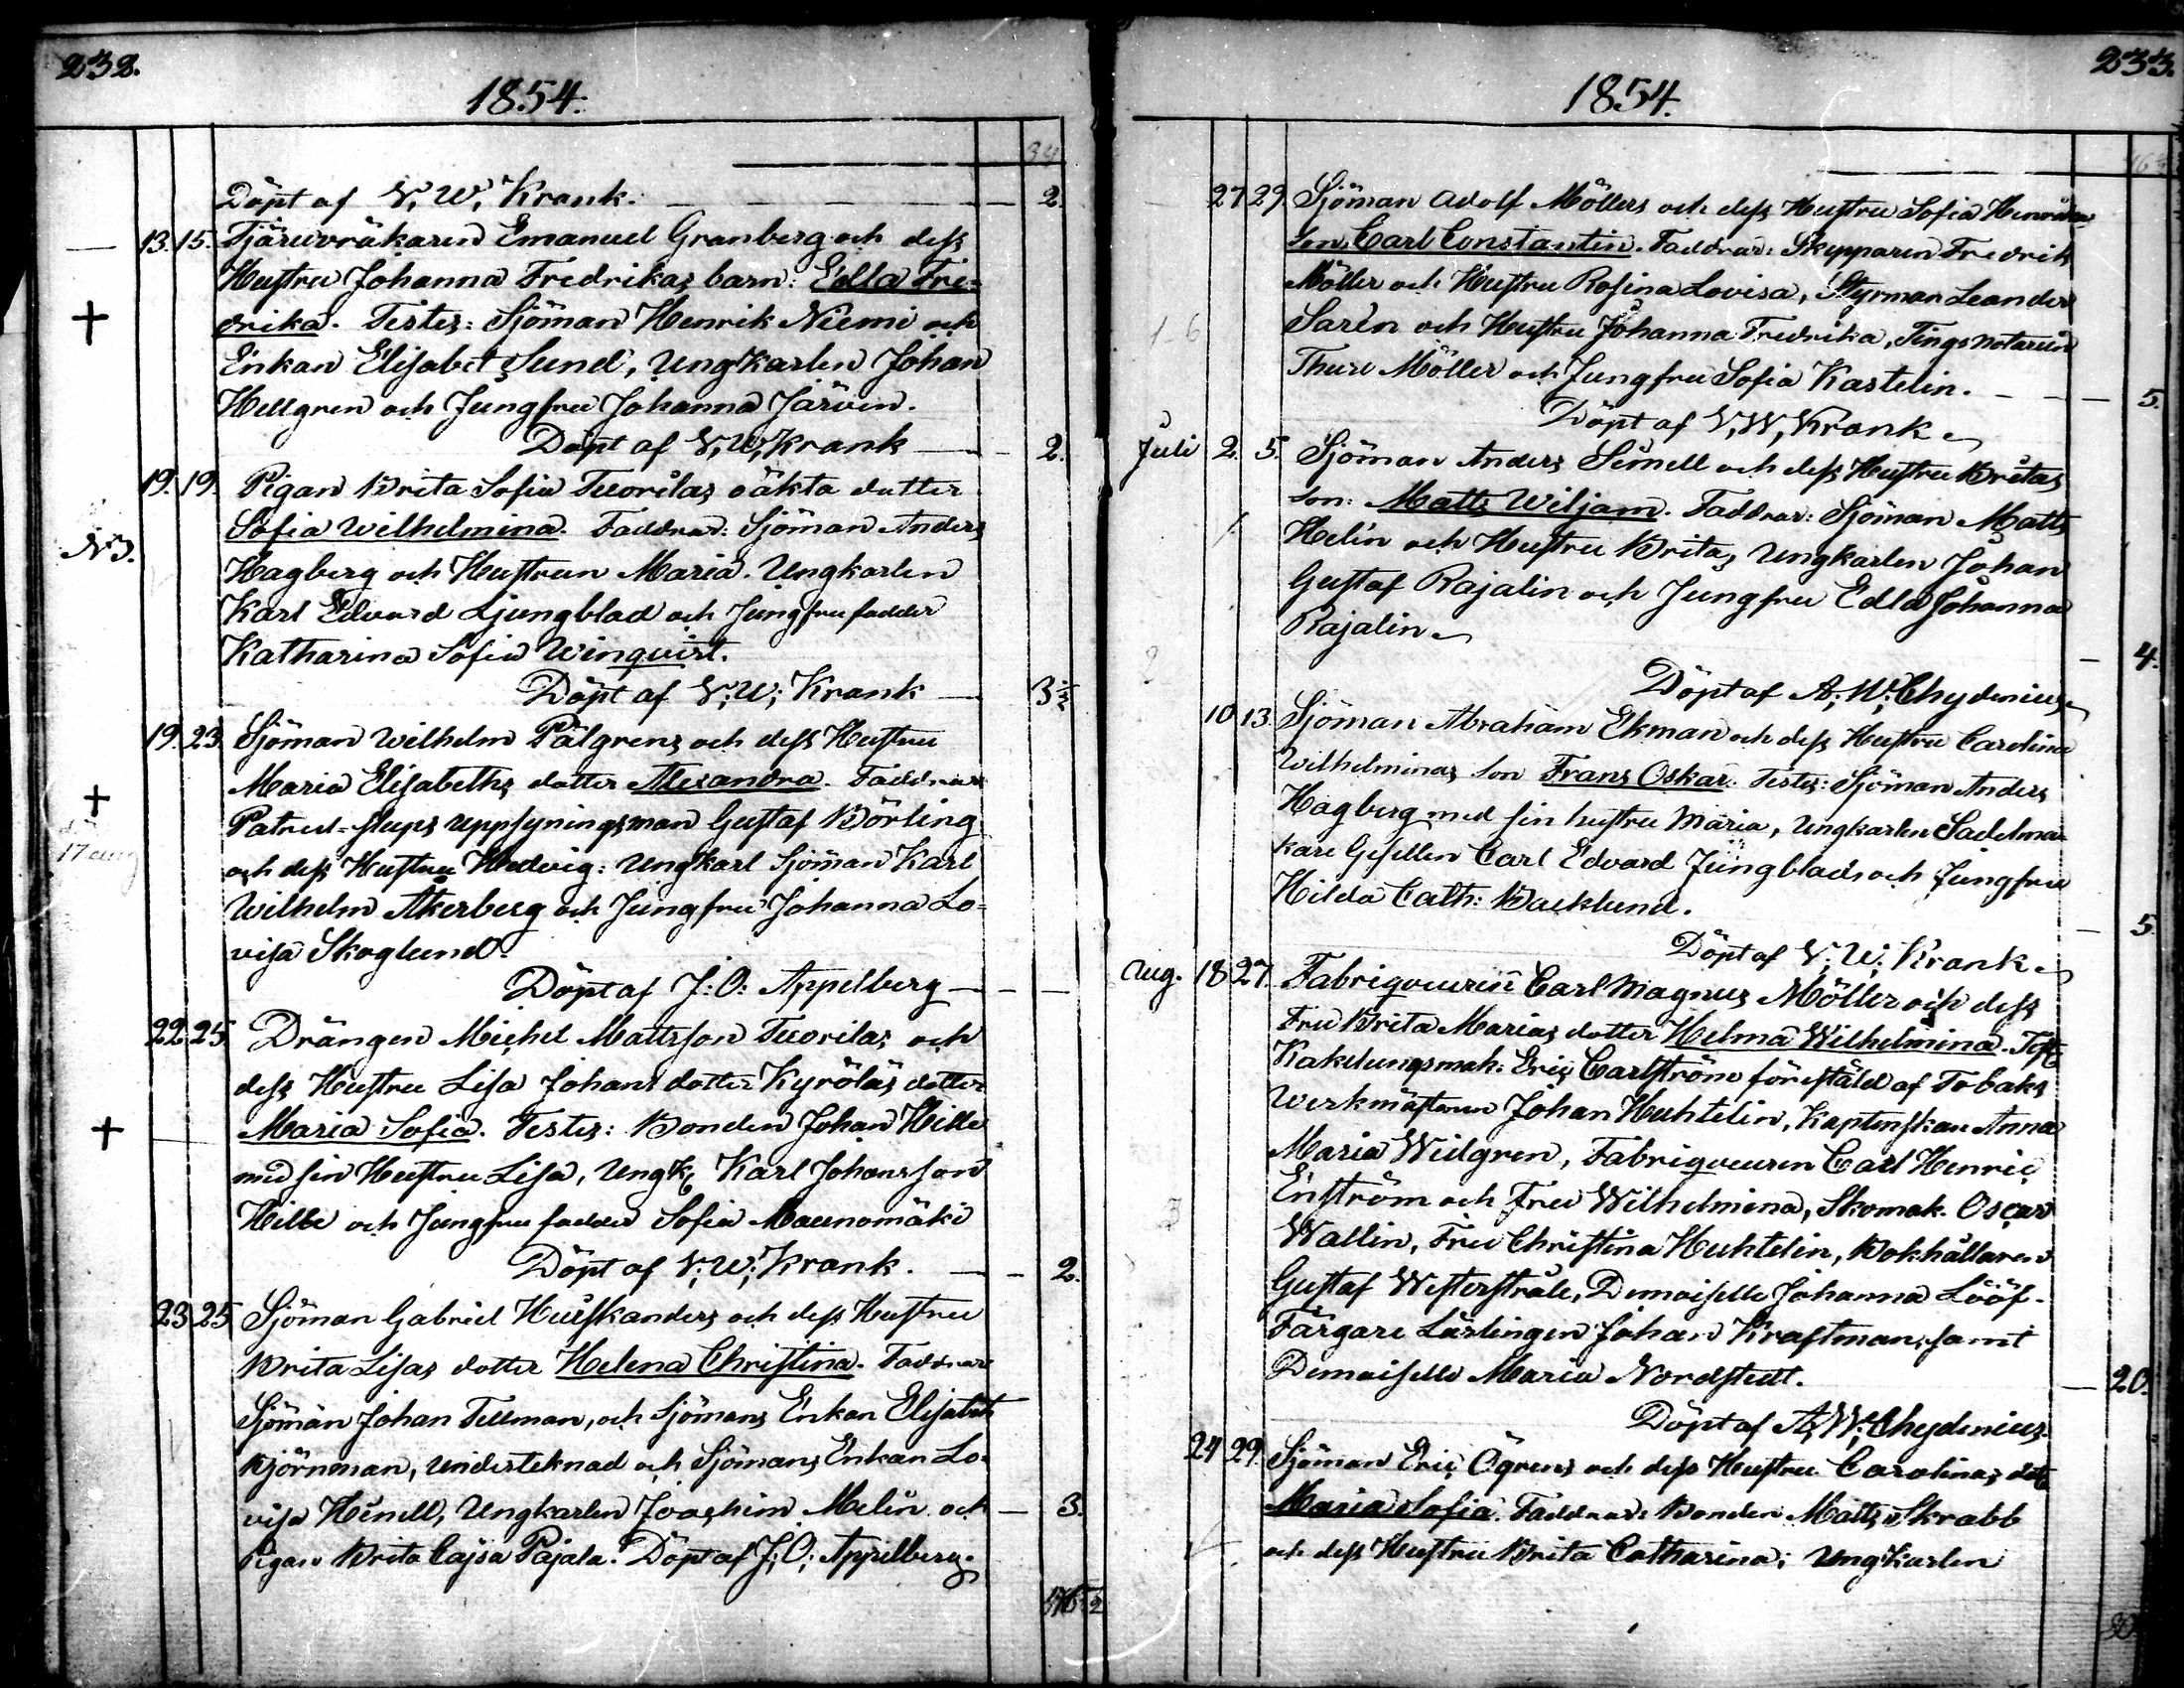 232.
1854.
34
Döpt af V. W. Krank. 2.
13. 15. Tjäruvräkaren Emanuel Granberg och dess
Hustru Johanna Fredrikas barn: Edla Fre-
drika. Testes: Sjöman Henrik Niemi och
Enkan Elisabet Sund, Ungkarlen Johan
Hellgren och Jungfru Johanna Järven.
Döpt af V. W. Krank 2.
19. 19. Pigan Brita Sofia Tuorilas oäkta dotter
Sofia Wilhelmina. Faddrar: Sjöman Anders
N3.
Hagberg och Hustrun Maria. Ungkarlen
Karl Edvard Ljungblad och Jungfru fadder
Katharina Sofia Winqvist.
Döpt af V. W. Krank 3½
19. 23. Sjöman Wilhelm Pälgrens och dess Hustru
Maria Elisabeths dotter Alexandra. Faddrar
Patrul-slups uppsyningsman Gustaf Börling
17 aug
och dess Hustru Hedvig: Ungkarl Sjöman Karl
Wilhelm Åkerberg och Jungfru Johanna Lo-
visa Skoglund.
Döpt af J. O. Appelberg
22. 25. Drängen Michel Mattsson Tuorilas och
dess Hustru Lisa Johans dotter Kyröläs dotter
Maria Sofia. Testes: Bonden Johan Hille
med sin Hustru Lisa, Ungk. Karl Johansson
Hille och Jungfru fadder Sofia Maunomäki
Döpt af V. W. Krank. 2.
23 25 Sjöman Gabriel Huskanders och dess Hustru
Brita Lisas dotter Helena Christina. Faddrar
Sjöman Johan Tellman, och Sjömans Enkan Elisabeth
Björnman, undertecknad och Sjömans Enkan Lo-
visa Henell, Ungkarlen Joachim Melin och 3.
Pigan Brita Cajsa Pajala. Döpt af J. O. Appelberg.
233.
1854.
27 29. Sjöman Adolf Möllers och dess Hustru Sofia Henrikas
son Carl Constantin. Faddrar: Skepparen Fredrik
Möller och Hustru Rosina Lovisa, Styrman Leander
Sarèn och Hustru Johanna Fredrika, Tings notarien
Thure Möller och Jungfru Sofia Kastelin. 5.
Döpt af V. W. Krank
Juli 2. 5. Sjöman Anders Simell och dess Hustru Britas
son: Matts Wiljam. Faddrar: Sjöman Matts
Helin och Hustru Brita, Ungkarlen Johan
Gustaf Rajalin och Jungfru Edla Johanna
Rajalin 4.
Döpt af A. W. Chydenius
10 13. Sjöman Abraham Ekman och dess Hustru Carolina
Wilhelminas son Frans Oskar. Testes: Sjöman Anders
Hagberg med sin hustru Maria, Ungkarlen Sadelma-
kare Gesellen Carl Edvard Jüngblad och Jungfru
Hilda Cath: Backlund. 5.
Döpt af V. W. Krank
Aug. 18 27. Fabriqueuren Carl Magnus Möller och dess
Fru Brita Marias dotter Helma Wilhelmina. Test.
Kakelungsmak. Eric Carlström föreställd af Tobaks
Werkmästaren Johan Huhtelin, Kaptenskan Anna
Maria Widgren, Fabriqueuren Carl Henric
Enström och Fru Wilhelmina, Skomak. Oscar
Wallin, Fru Christina Huhtelin, Bokhållaren
Gustaf Westerstråle, Demoiselle Johanna Lööf.
Färgare Lärlingen Johan Kraftman, samt
Demoiselle Maria Nordstedt. 20.
Döpt af A. W. Chydenius.
24 29. Sjöman Eric Ögrens och dess Hustru Carolinas dott.
Maria Sofia. Faddrar: Bonden Matts Skrabb
och dess Hustru Brita Catharina; Ungkarlen